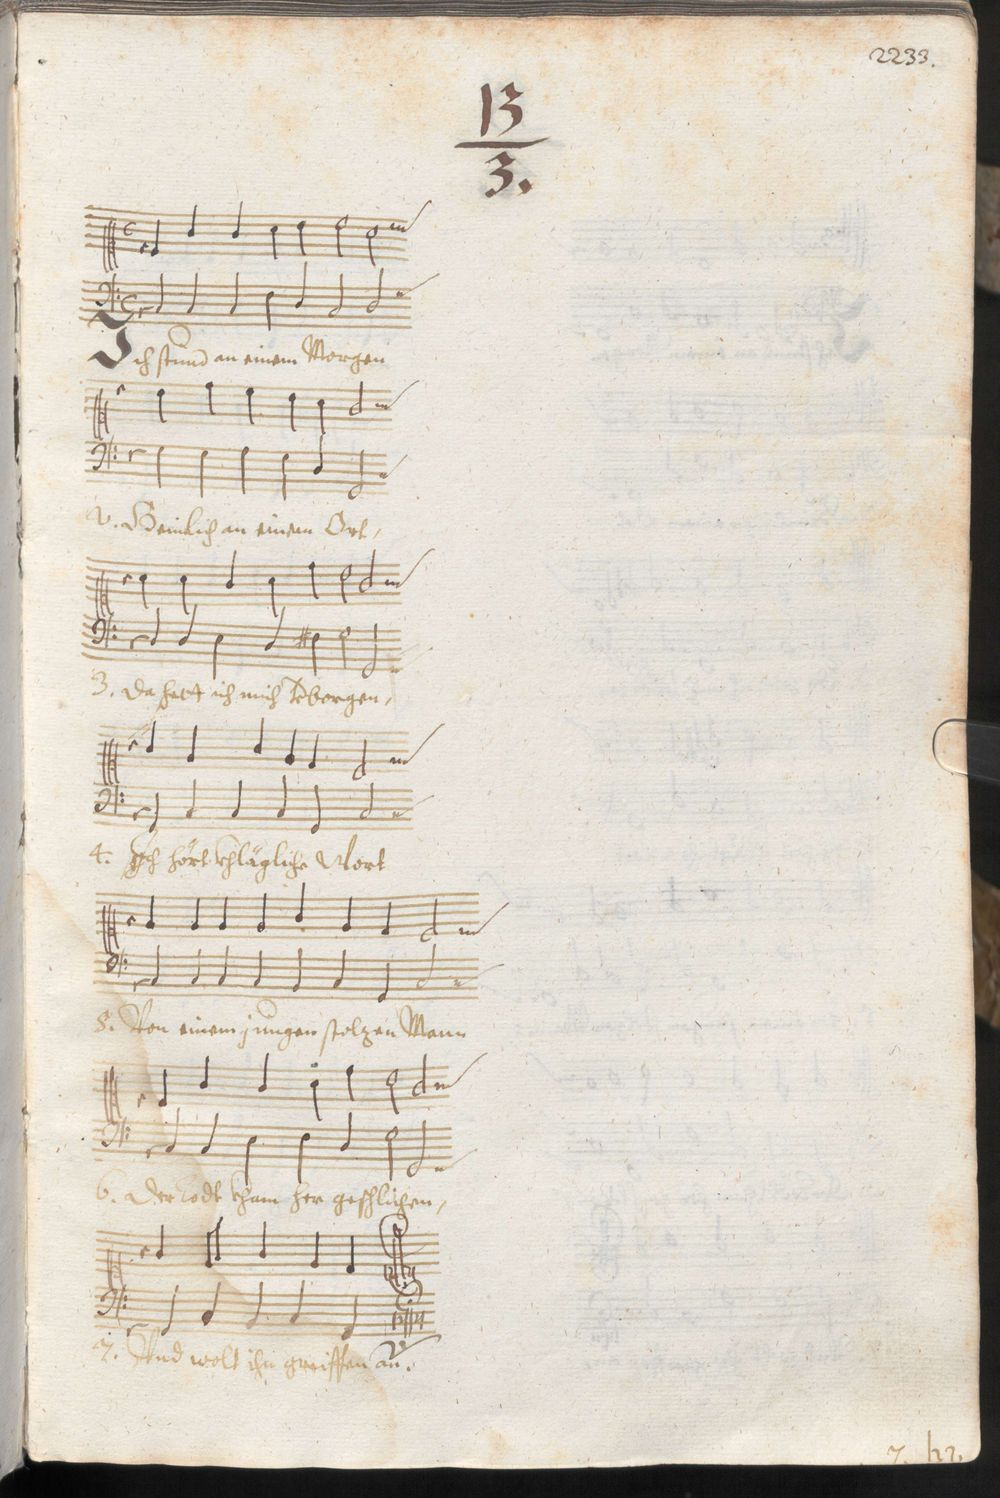 2233.
13
3.
Ich stund an einem Morgen
2. Heimlich an einem Ort,
3. Da hett ich mich verborgen,
4. Ich hört khlägliche Wort
5. Von einem jungen stolzen Mann
6. Der Todt kham her geschlichen,
7. Vnd wolt ihn greiffen an.
7.